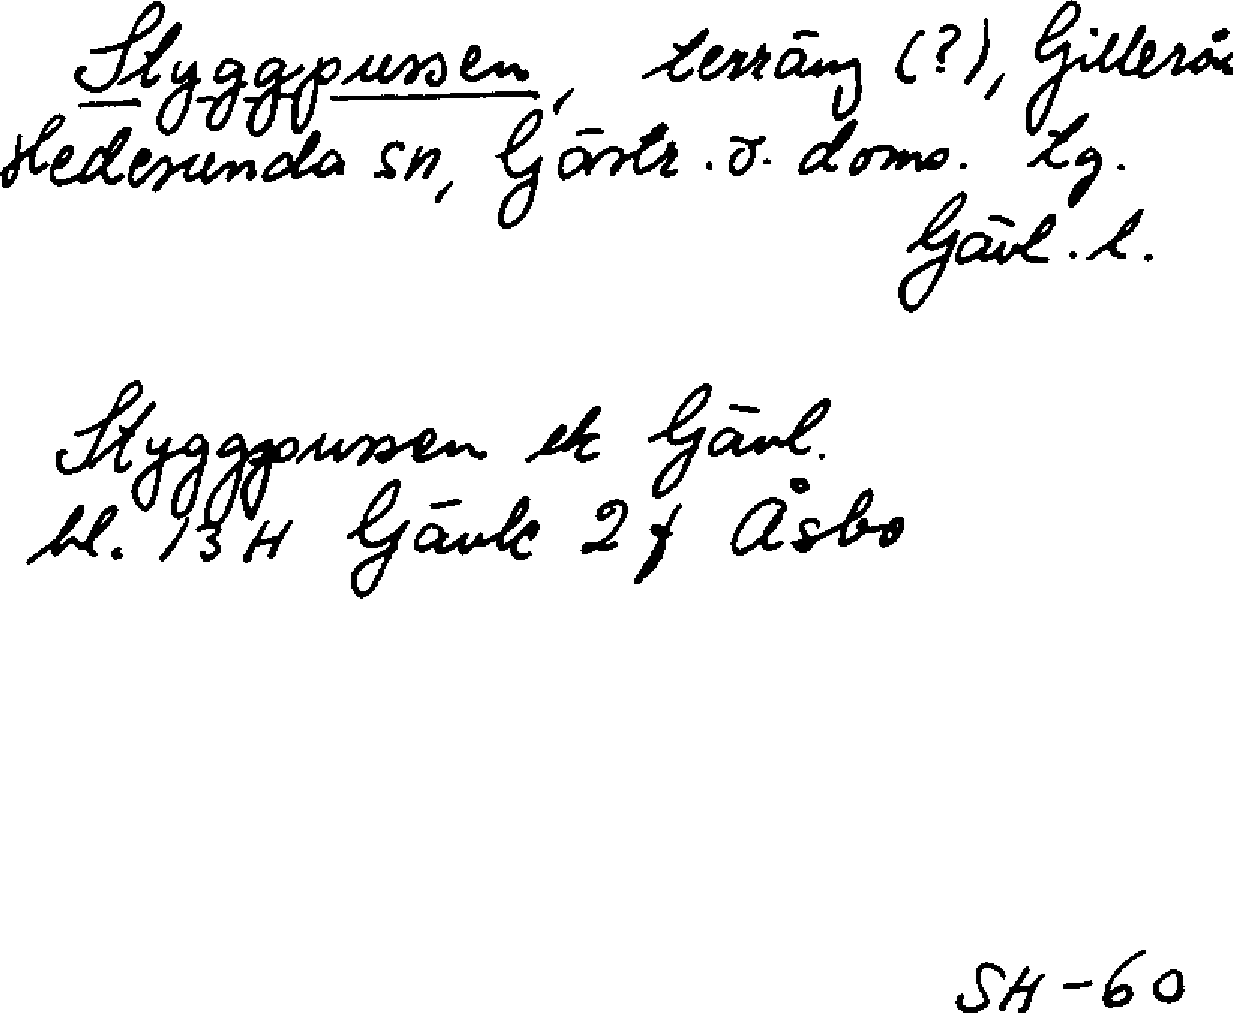 Styggpussen, terräng (?),
Hedesunda sn, Gästr. ö. doms. tg.
Gävl. l.
Styggpussen ek Gävl.
bl. 13H Gävle 2f Åsbo
SH-60